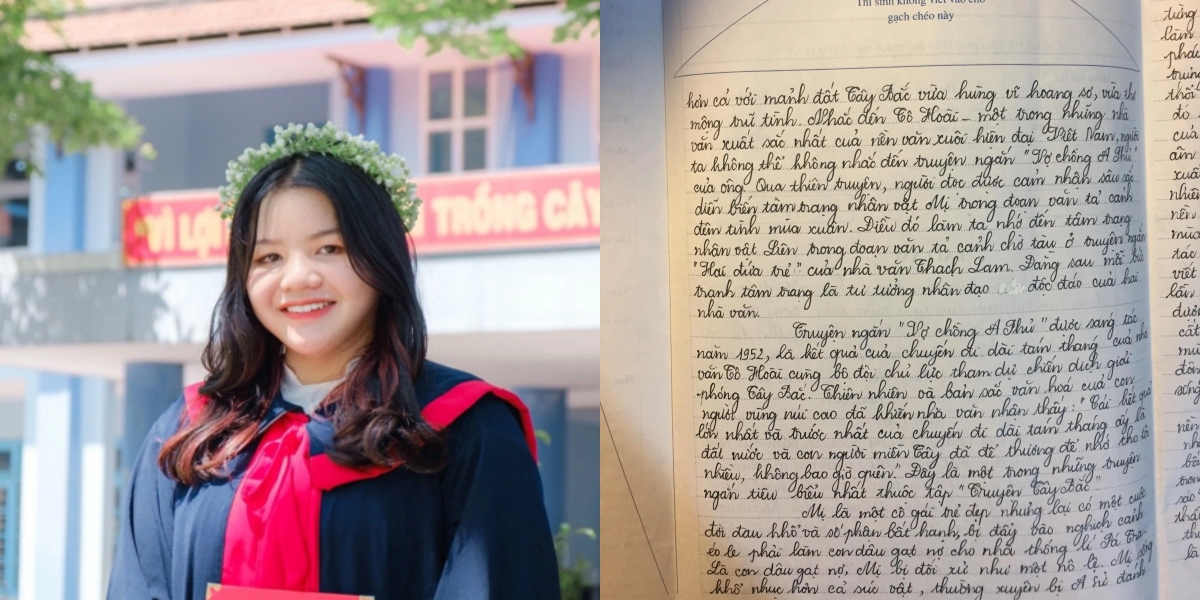 "VÌ LỢI
TRỒNG CÂY
Thí sinh không viết vào chỗ
gạch chéo này
hơn cả với mảnh đất Tây Bắc vừa hùng vĩ hoang sơ, vừa thơ
mộng trữ tình. Nhắc đến Tô Hoài – một trong những nhà
văn xuất sắc nhất của nền văn xuôi hiện đại Việt Nam, người
ta không thể không nhắc đến truyện ngắn "Vợ chồng A Phủ"
của ông. Qua thiên truyện, người đọc được cảm nhận sâu sắc
diễn biến tâm trạng nhân vật Mị trong đoạn văn tả cảnh
đêm tình mùa xuân. Điều đó làm ta nhớ đến tâm trạng
nhân vật Liên trong đoạn văn tả cảnh chờ tàu ở truyện ngắn
"Hai đứa trẻ" của nhà văn Thạch Lam. Đằng sau mỗi bức
tranh tâm trạng là tư tưởng nhân đạo độc đáo của hai
nhà văn.
Truyện ngắn "Vợ chồng A Phủ" được sáng tác
năm 1952, là kết quả của chuyến đi dài tám tháng của nhà
văn Tô Hoài cùng bộ đội chủ lực tham dự chiến dịch giải
phóng Tây Bắc. Thiên nhiên và bản sắc văn hoá của con
người vùng núi cao đã khiến nhà văn nhận thấy: "Cái kết quả
lớn nhất và trước nhất của chuyến đi dài tám tháng ấy là
đất nước và con người miền Tây đã để thương để nhớ cho tôi
nhiều, không bao giờ quên." Đây là một trong những truyện
ngắn tiêu biểu nhất thuộc tập "Truyện Tây Bắc".
Mị là một cô gái trẻ đẹp nhưng lại có một cuộc
đời đau khổ và số phận bất hạnh, bị đẩy vào nghịch cảnh
éo le phải làm con dâu gạt nợ cho nhà thống lí Pá Tra.
Là con dâu gạt nợ, Mị bị đối xử như một nô lệ. Mị sống
khổ nhục hơn cả súc vật, thường xuyên bị A Sử đánh